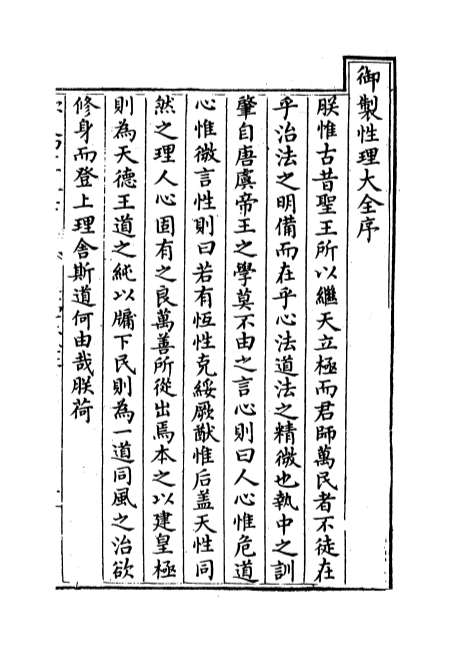 御製性理大全序
朕惟古昔聖王所以繼天立極而君師萬民者不徒在
乎治法之明備而在乎心法道法之精微也執中之訓
肇自唐虞帝王之學莫不由之言心則曰人心惟危道
心惟微言性則曰若有恆性克綏厥猷惟后盖天性同
然之理人心固有之良萬善所從出焉本之以建皇極
則為天德王道之純以牖下民則為一道同風之治欲
修身而登上理舍斯道何由哉朕荷